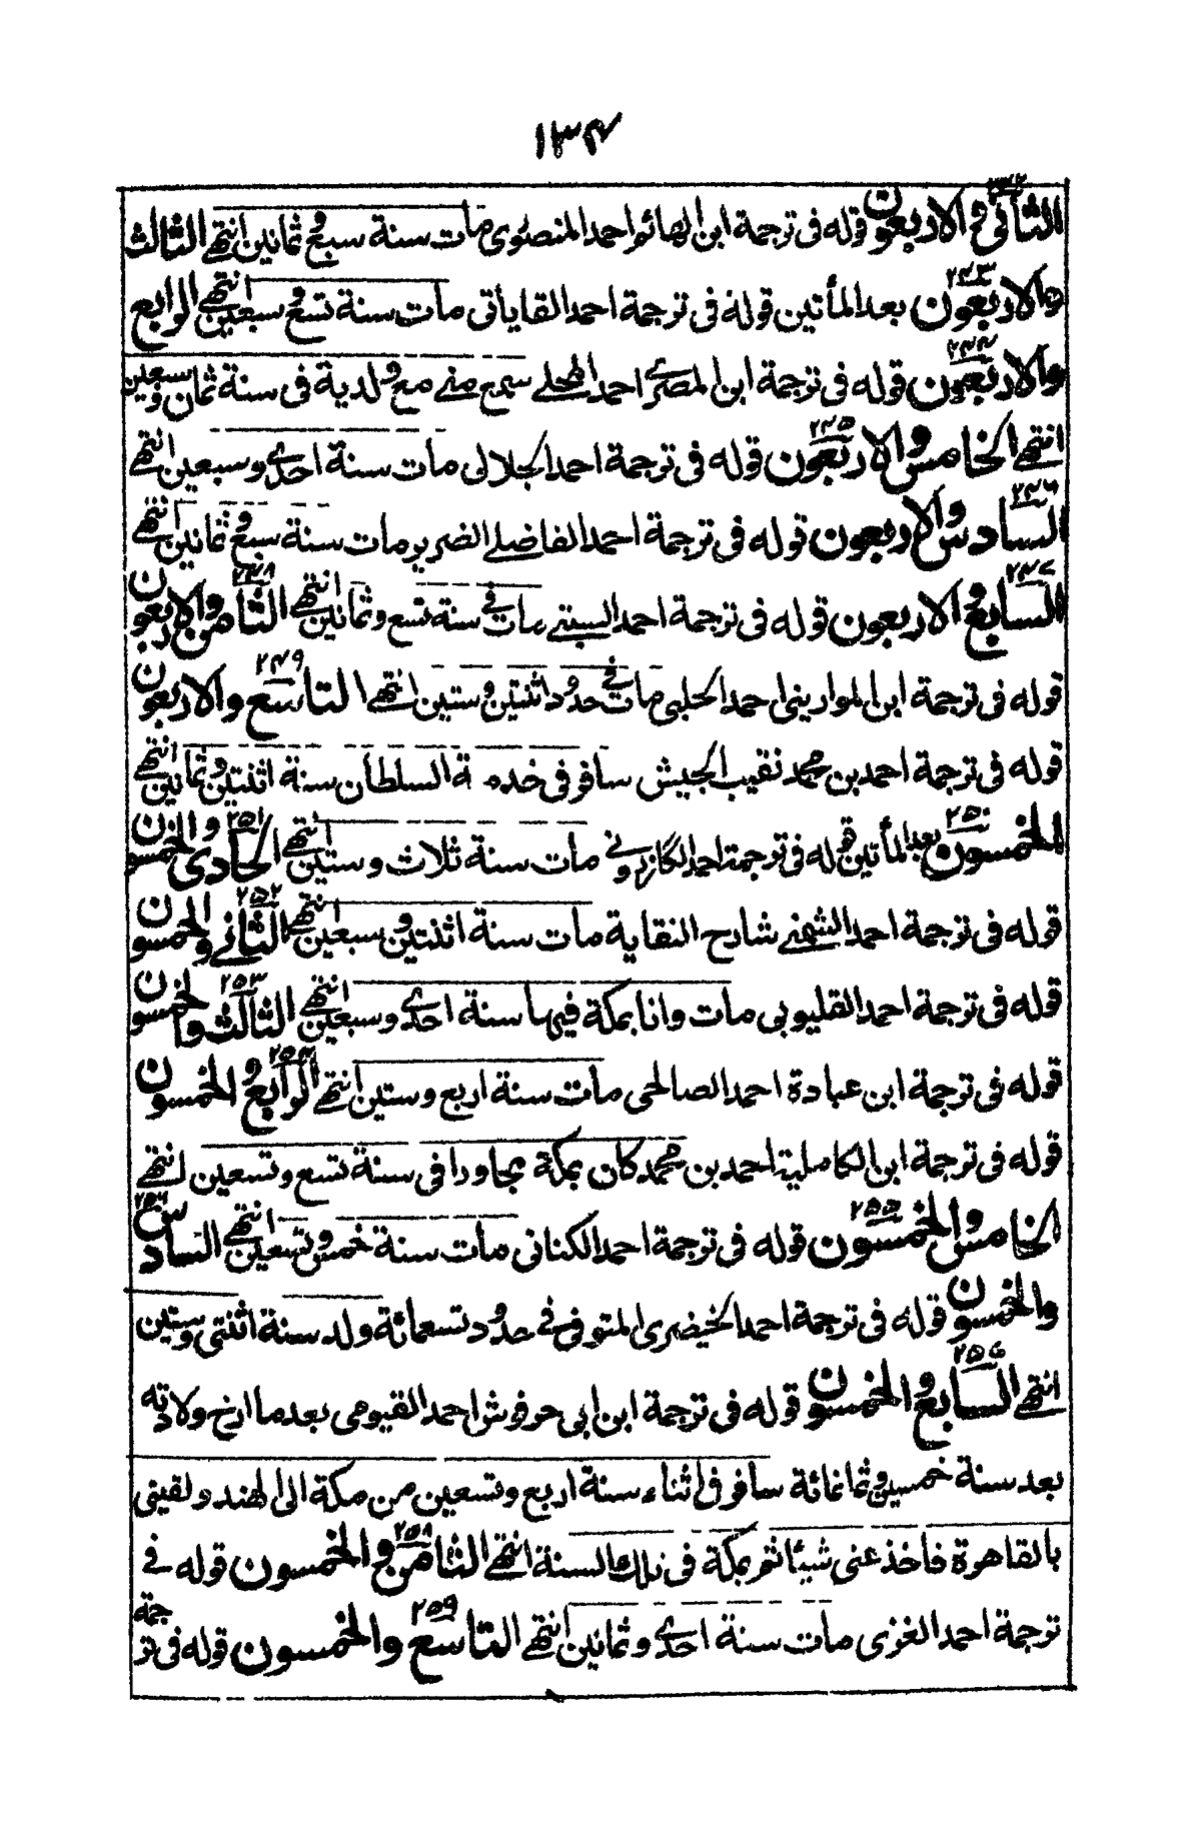 ١٣٤
٢٤٢
الثانى والاربعون قوله فى ترجمة ابن الهائم احمد المنصورى مات سنة سبع وثمانين انتهى الثالث
٢٤٣
والاربعون بعد المأتين قوله فى ترجمة احمد القاياتى مات سنة تسع وسبعين انتهى الرابع
٢٤٤
والاربعون قوله فى ترجمة ابن المصرى احمد المحلى سمع منى مع ولديه فى سنة ثمان وتسعين
٢٤٥
انتهى الخامس والاربعون قوله فى ترجمة احمد الجلالى مات سنة احدى وسبعين انتهى
٢٤٦
السادس والاربعون قوله فى ترجمة احمد الفاضلى الضرير مات سنة سبع وثمانين انتهى
٢٤٧ ٢٤٨
السابع والاربعون قوله فى ترجمة احمد السبتى مات فى سنة تسع وثمانين انتهى الثامن والاربعون
٢٤٩
قوله فى ترجمة ابن الموارينى احمد الحلبى مات فى حدود اثنتين وستين انتهى التاسع والاربعون
قوله فى ترجمة احمد بن محمد نقيب الجيش سافر فى خدمة السلطان سنة اثنتين وثمانين انتهى
٢٥٠ ٢٥١
الخمسون بعد المأتين قوله فى ترجمة احمد الكازرونى مات سنة ثلاث وستين انتهى الحادى والخمسون
٢٥٢
قوله فى ترجمة احمد الشمنى شارح النقاية مات سنة اثنتين وسبعين انتهى الثانى والخمسون
٢٥٣
قوله فى ترجمة احمد القليوبى مات وانا بمكة فيها سنة احدى وسبعين انتهى الثالث والخمسون
٢٥٤
قوله فى ترجمة ابن عبادة احمد الصالحى مات سنة اربع وستين انتهى الرابع والخمسون
قوله فى ترجمة ابن الكاملية احمد بن محمد كان بمكة مجاورا فى سنة تسع وتسعين انتهى
٢٥٥ ٢٥٦
الخامس والخمسون قوله فى ترجمة احمد الكنانى مات سنة خمس وتسعين انتهى السادس
والخمسون قوله فى ترجمة احمد الخيضرى المتوفى فى حدود تسعمائة ولد سنة اثنتى وستين
٢٥٧
انتهى السابع والخمسون قوله فى ترجمة ابن ابى حرفوش احمد القيومى بعد ما ارخ ولادته
بعد سنة خمسين وثمانمائة سافر فى اثناء سنة اربع وتسعين من مكة الى الهند ولقينى
٢٥٨
بالقاهرة فاخذ عنى شيئا ثم بمكة فى تلك السنة انتهى الثامن والخمسون قوله فى
٢٥٩
ترجمة احمد الغزى مات سنة احدى وثمانين انتهى التاسع والخمسون قوله فى ترجمة